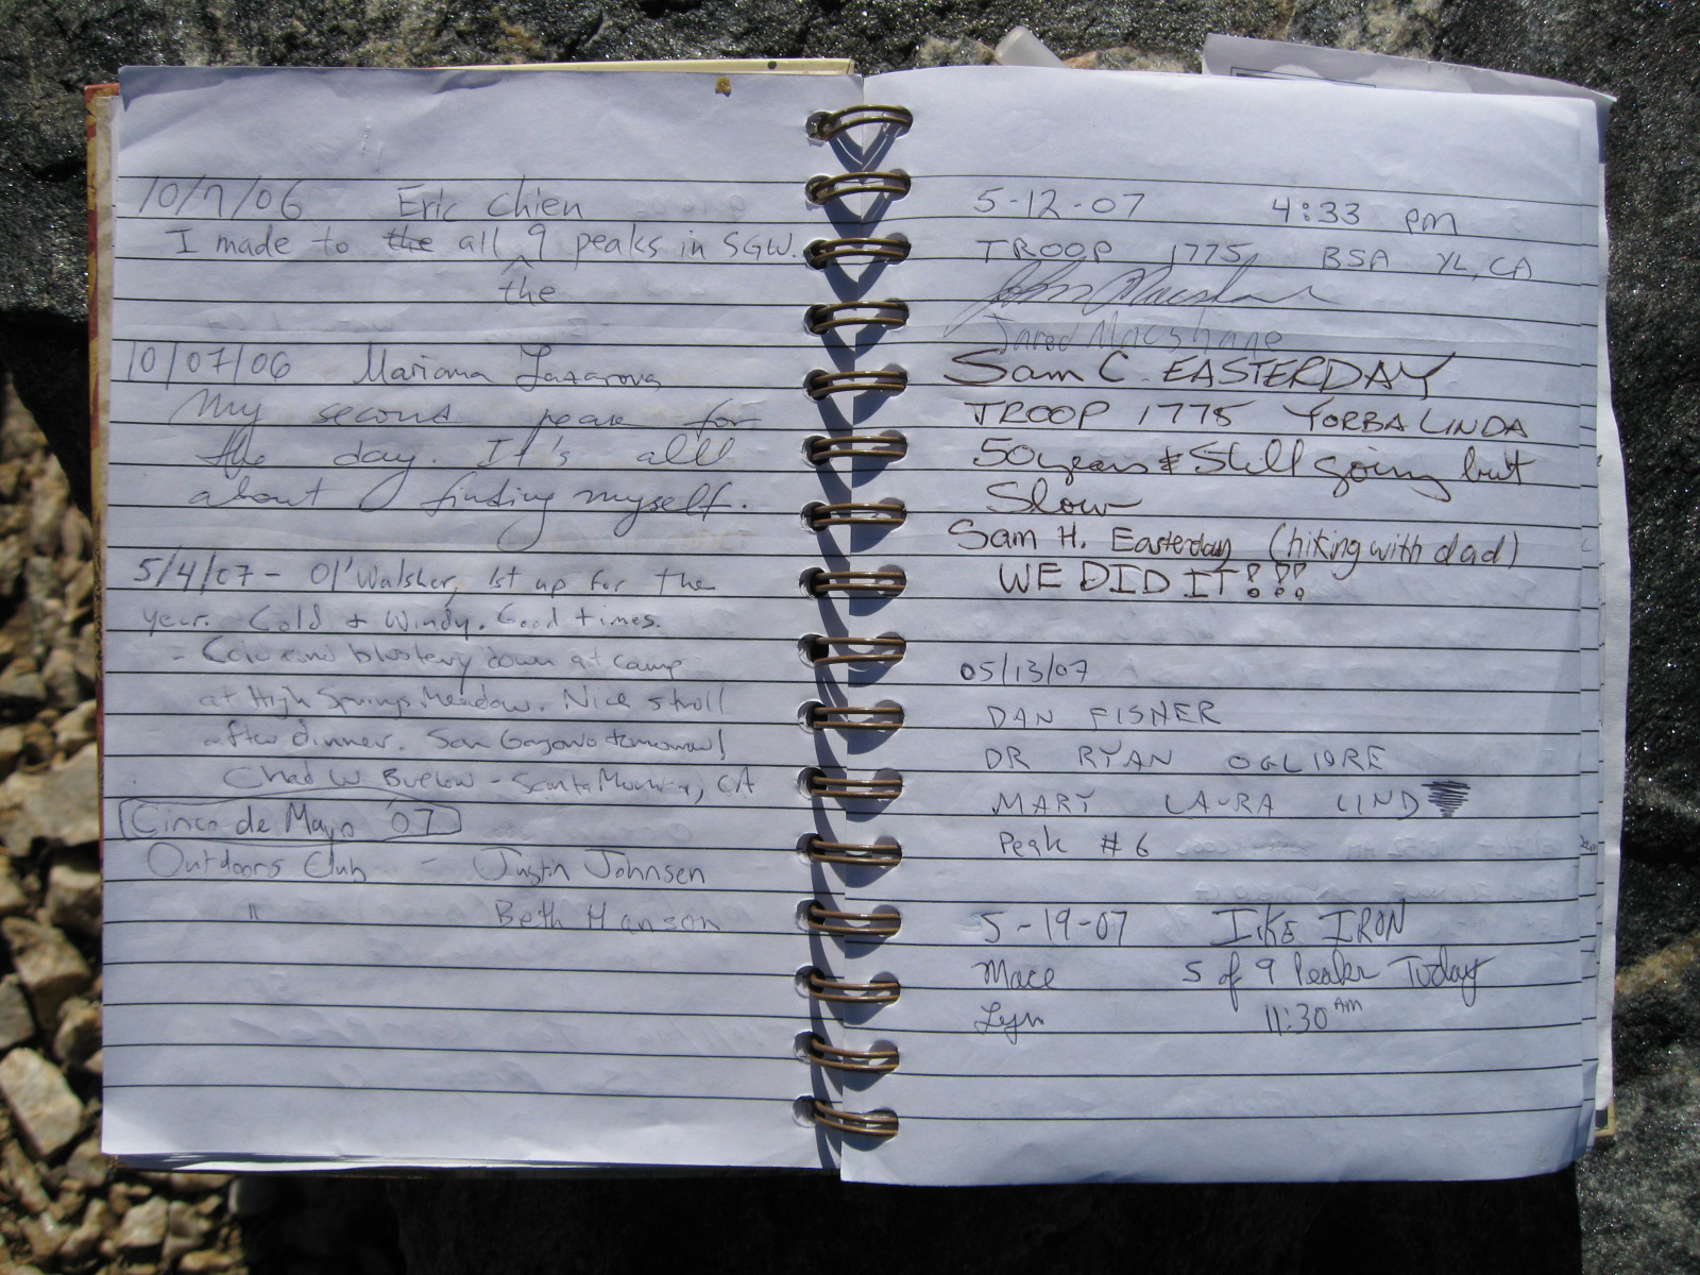 10/7/06 Eric Chien
I made to the all 9 peaks in SGW.
the
10/07/06 Mariana Lazarova
My second peak for
the day. It's all
about finding myself.
5/4/07 - Ol' Walsher, 1st up for the
year. Cold & Windy. Good times.
- Cold and blustery down at camp
at High Springs Meadow. Nice stroll
after dinner. San Gorgonio tomorrow!
Chad W Buelow - Santa Monica, CA
Cinco de Mayo '07
Outdoors Club - Justin Johnsen
" Beth Hanson
5-12-07 4:33 pm
TROOP 1775 BSA YL, CA
John Macshane
Jarod Macshane
Sam C. EASTERDAY
TROOP 1775 YORBA LINDA
50 years & Still going but
Slow
Sam H. Easterday (hiking with dad)
WE DID IT!!!
05/13/07
DAN FISHER
DR RYAN OGLIORE
MARY LAURA LIND
Peak #6
5-19-07 IKE IRON
Mace 5 of 9 Peaks Today
Lyn 11:30 AM